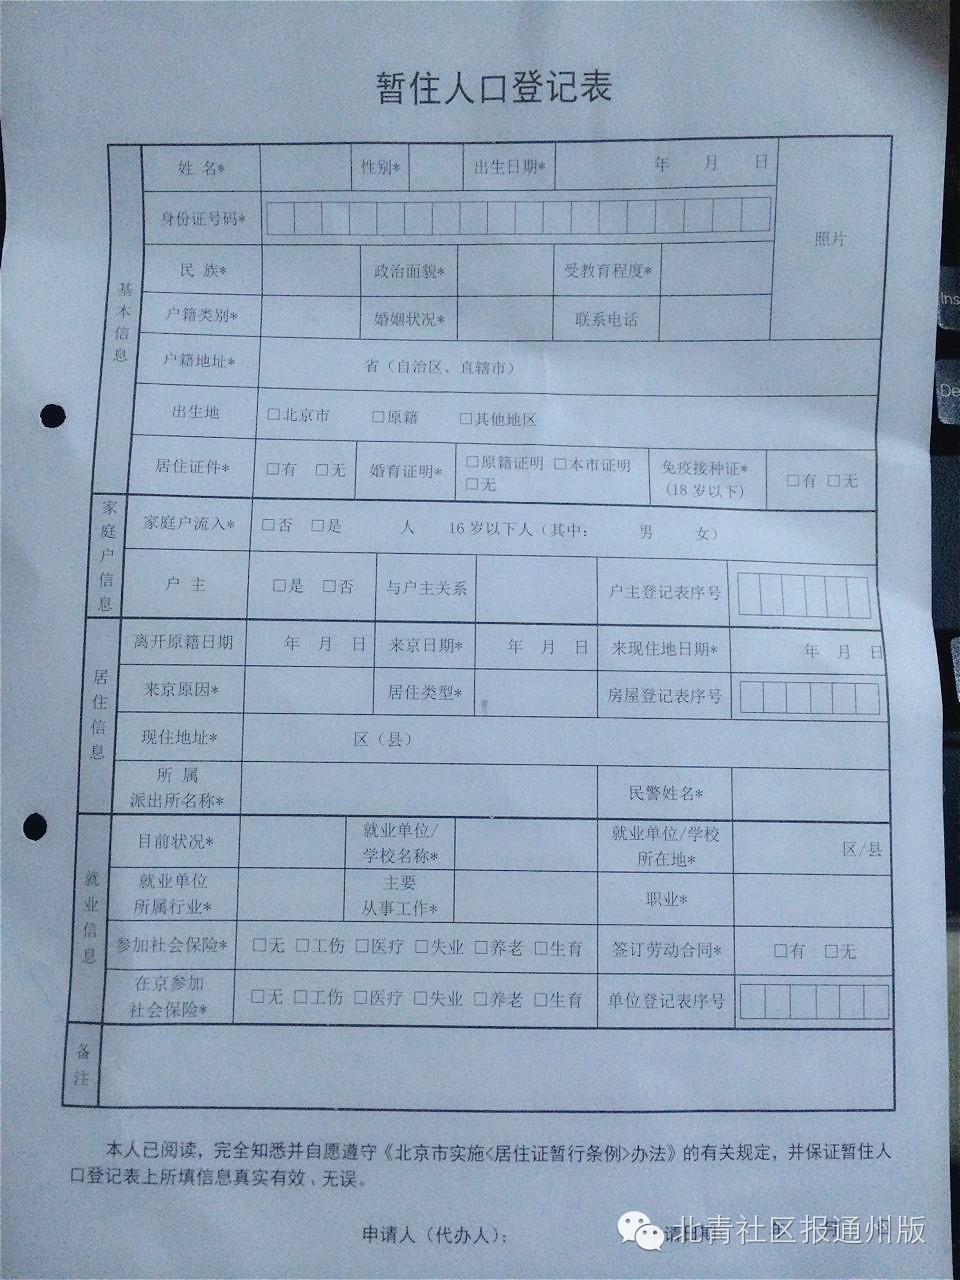 暂住人口登记表
姓 名* 性别* 出生日期* 年 月 日
身份证号码* 照片
民 族* 政治面貌* 受教育程度*
户籍类别* 婚姻状况* 联系电话
基本信息
户籍地址* 省（自治区、直辖市）
出生地 □北京市 □原籍 □其他地区
居住证件* □有 □无 婚育证明* □原籍证明 □本市证明 □无 免疫接种证* (18岁以下) □有 □无
家庭户信息
家庭户流入* □否 □是 人 16岁以下人（其中： 男 女）
户 主 □是 □否 与户主关系 户主登记表序号
居住信息
离开原籍日期 年 月 日 来京日期* 年 月 日 来现住地日期* 年 月 日
来京原因* 居住类型* 房屋登记表序号
现住地址* 区（县）
所 属
派出所名称* 民警姓名*
就业信息
目前状况* 就业单位/学校名称* 就业单位/学校所在地* 区/县
就业单位所属行业* 主要从事工作* 职业*
参加社会保险* □无 □工伤 □医疗 □失业 □养老 □生育 签订劳动合同* □有 □无
在京参加社会保险* □无 □工伤 □医疗 □失业 □养老 □生育 单位登记表序号
备注
本人已阅读，完全知悉并自愿遵守《北京市实施<居住证暂行条例>办法》的有关规定，并保证暂住人
口登记表上所填信息真实有效、无误。
申请人（代办人）：
北青社区报通州版
Ins
De